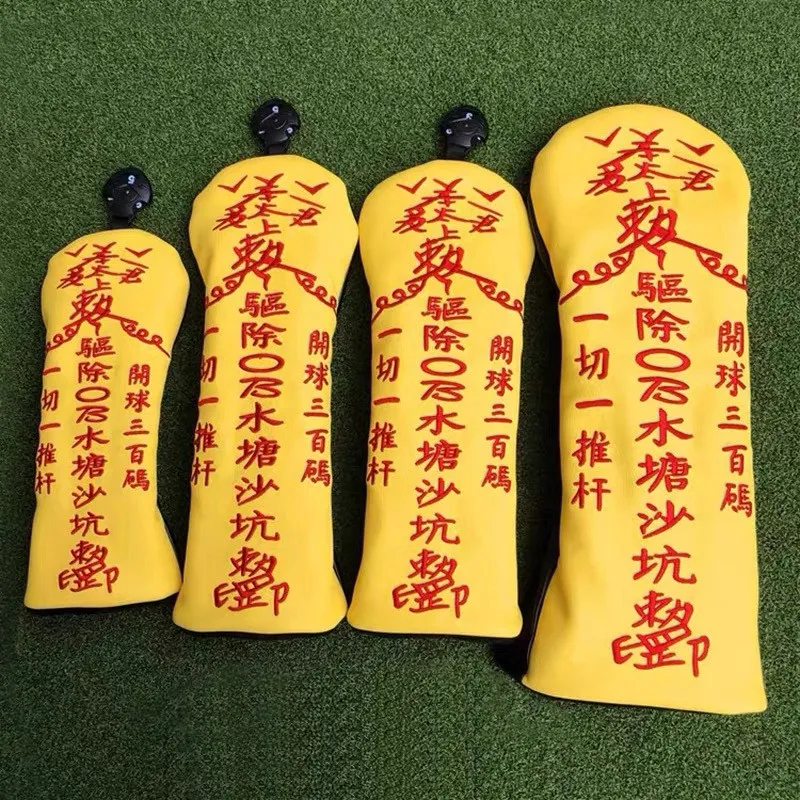 開球三百碼
驅除OB水塘沙坑
一切一推杆
開球三百碼
驅除OB水塘沙坑
一切一推杆
開球三百碼
驅除OB水塘沙坑
一切一推杆
開球三百碼
驅除OB水塘沙坑
一切一推杆